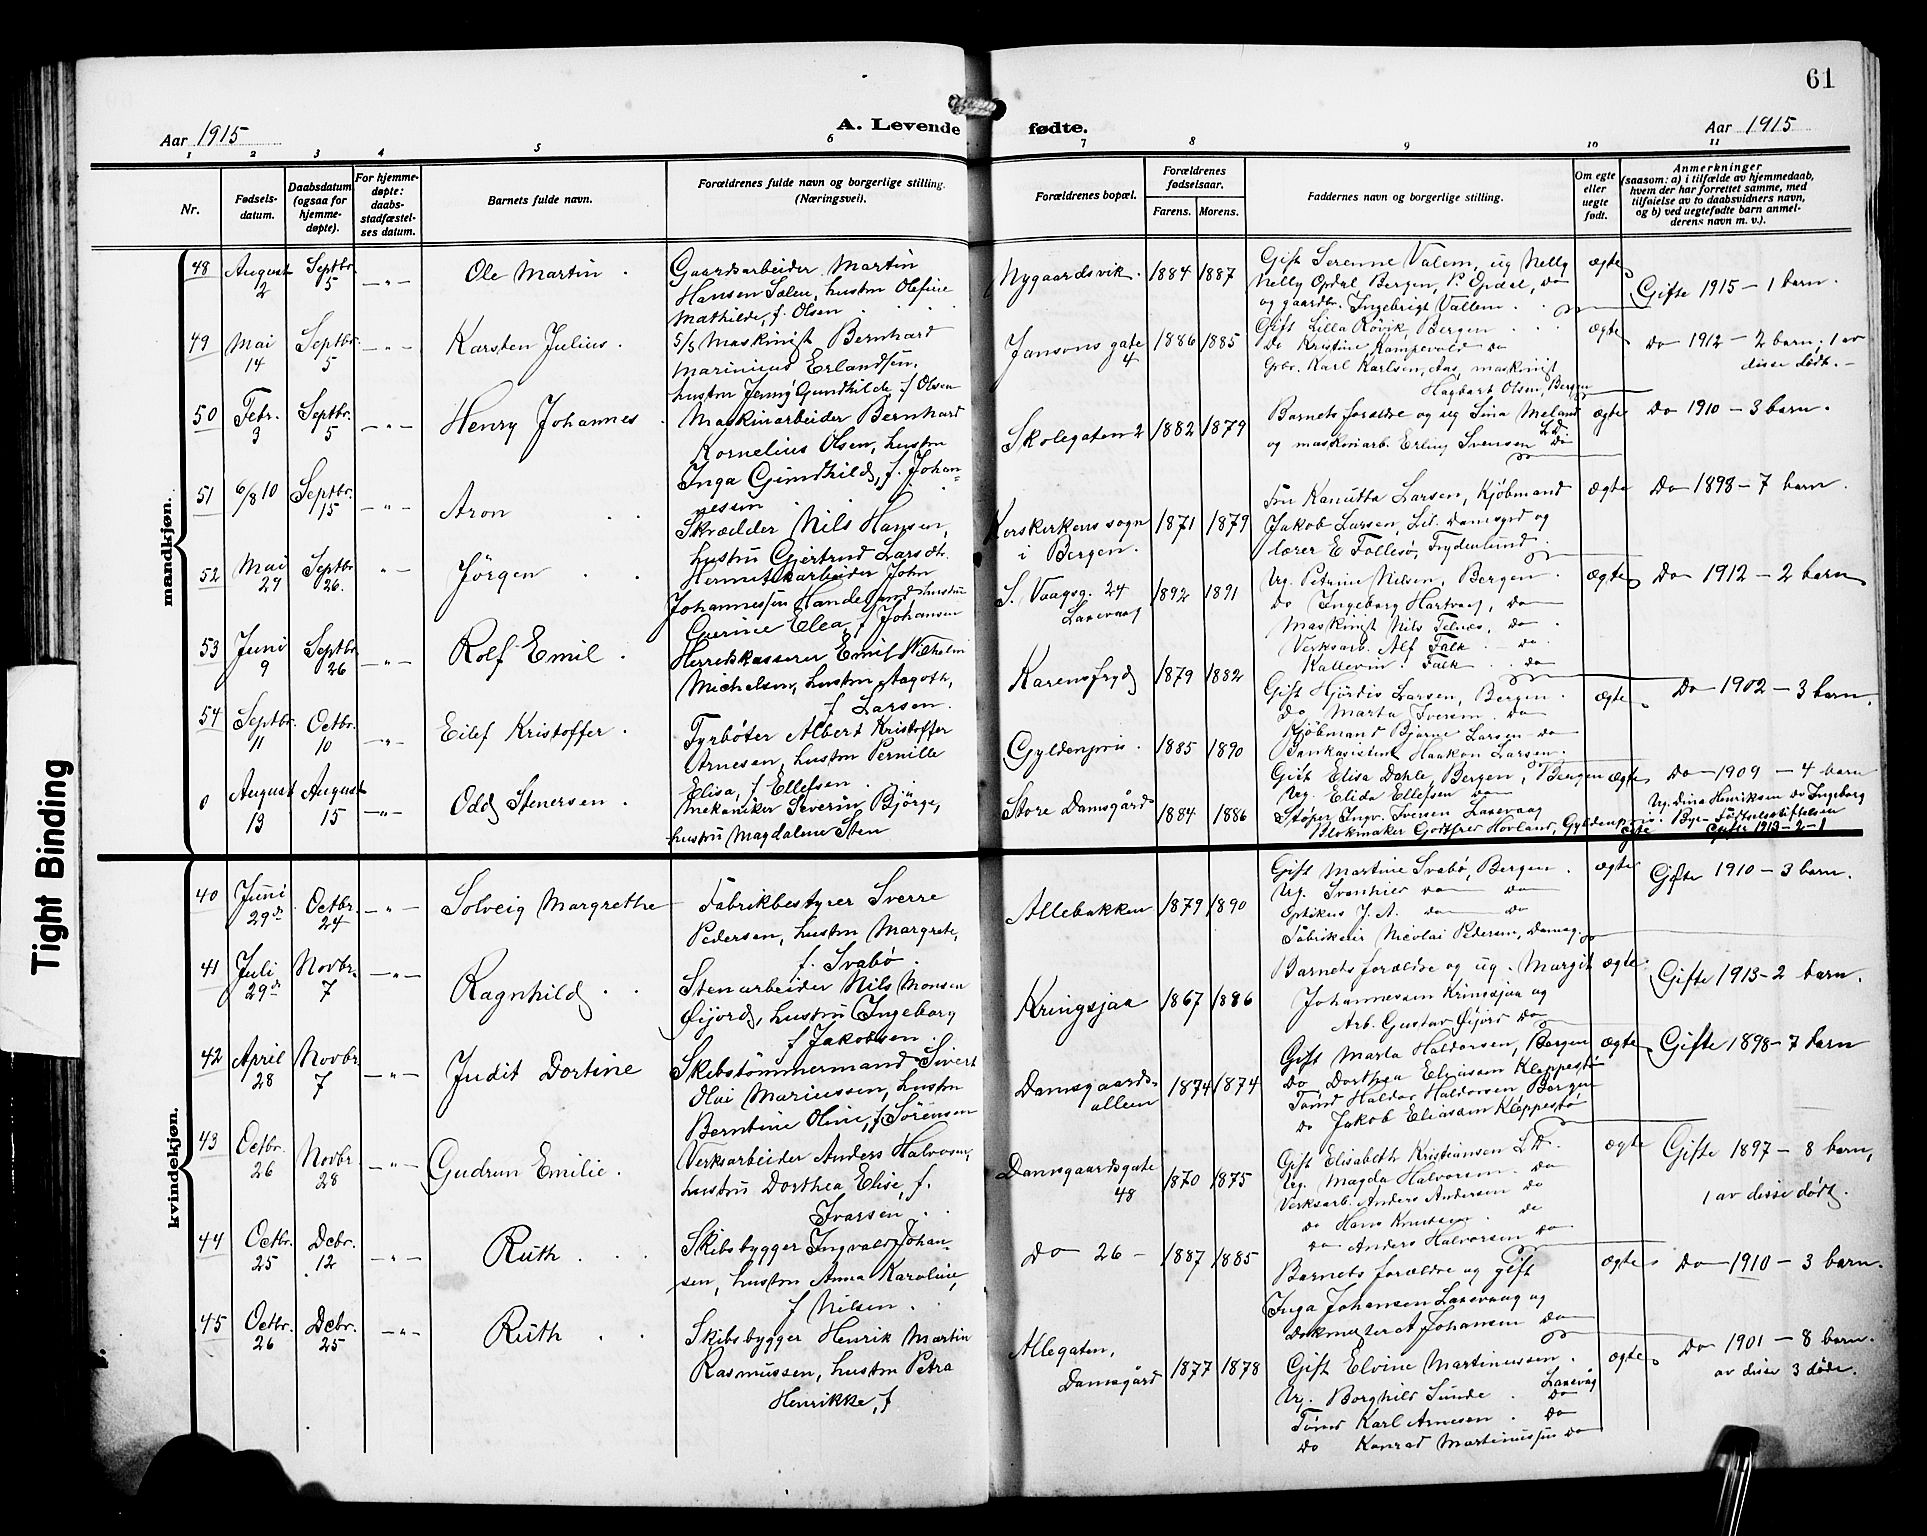 61
Aar 1915
A. Levende fødte.
Aar 1915
1 2 3 4 5 6 7 8 9 10 11
Nr.
Fødsels-
datum.
Daabsdatum
(ogsaa for
hjemme-
døpte).
For hjemme-
døpte:
daabs-
stadfæstel-
ses datum.
Barnets fulde navn.
Forældrenes fulde navn og borgerlige stilling.
(Næringsvei).
Forældrenes bopæl.
Forældrenes
fødselsaar.
Farens. Morens.
Faddernes navn og borgerlige stilling.
Om egte
eller
uegte
født.
Anmerkninger
(saasom: a) i tilfælde av hjemmedaab,
hvem der har forrettet samme, med
tilføielse av to daabsvidners navn,
og b) ved uegtefødte barn anmel-
derens navn m. v.).
mandkjøn.
48 August 2 Septbr. 5 -"- Ole Martin
Gaardsarbeider Martin
Hansen Salen, hustru Olefine
Mathilde, f. Olsen
Nygaardsvik. 1884 1887
Gift Serenne Valem, ug Nelly
Nelly Opdal Bergen, P. Opdal, do
og gaardbr. Ingebrigt Vallem
ægte
Gifte 1915 - 1 barn.
49 Mai 14 Septbr. 5 -"- Karsten Julius.
5/5 Maskinist Bernhard
Marinius Erlandsen,
hustru Jenny Gundhilde f Olsen
Jansons gate
4
1886 1885
Gift Lilla Rövik, Bergen
Do Kristine Kampevold do
Gbr. Karl Karlsen, Aas, maskinist
Hagbart Olsen, Bergen
ægte
Do 1912 - 2 barn, 1 av
disse dödt. -
50 Febr. 3 Septbr. 5 -"- Henry Johannes
Maskinarbeider Bernhard
Kornelius Olsen, hustru
Inga Gundhild, f. Johan-
nessen
Skolegaten 2 1882 1879
Barnets forældre og ug Lina Meland
og maskinarb. Erling Svensen L.D.
do
ægte
Do 1910 - 3 barn.
51 6/8 10 Septbr. 15 -"- Aron
Skrædder Nils Hansen,
hustru Gjertrud Larsdtr.
Korskirkens sogn
i Bergen.
1871 1879
Fru Kanutta Larsen, Kjöbmand
Jakob Larsen, Lil. Damsgrd og
lærer E Follesö, Frydenlund
ægte
Do 1898 - 7 barn.
52 Mai 29 Septbr. 26. " Jörgen
Hermetikarbeider John
Johannessen Handeland hustru
Guerine Elea, f Johansen
S. Vaagsg. 24
Laxevaag
1892 1891
Ug. Petrine Nilsen, Bergen
Do Ingeborg Hartvag, do
Maskinist Nils Telnæs, do
Verksarb. Alf Falk - do
Kallevin Falk do
ægte
Do 1912 - 2 barn
53 Juni 9 Septbr. 26 -"- Rolf Emil
Herredskasserer Emil Wilhelm
Michelsen, hustru Aagoth,
f Larsen.
Karensfryd 1879 1882
Gift Hjördis Larsen, Bergen
Do Marta Iversen do
Kjöbmand Bjarne Larsen do
Bankasistent Haakon Larsen.
ægte
Do 1902 - 3 barn
54 Septbr. 11 Octbr. 10 -"- Eilef Kristoffer
Fyrböter Albert Kristoffer
Arnesen, hustru Pernille
Elisa, f Ellefsen
Gyldenpris. 1885 1890
Gift Elisa Dahle, Bergen, Bergen
Ug. Elida Ellefsen do
Stöper Ingv. Iversen Laxevaag
Blokmaker Godtfred Hovland, Gyldenpris.
ægte
Do 1909 - 4 barn
0 August 13 August 15 -"- Odd Stenersen
Mekaniker Severin Björge,
hustru Magdalene Sten
Store Damsgård 1884 1886
ægte
Ug. Dina Henriksen do Ingeborg
Bye - Födselsstiftelsen
Gifte 1913 - 2 - 1
kvindekjøn.
40 Juni 29de Octbr. 24 -"- Solveig Margrethe
Fabrikbestyrer Sverre
Pedersen, hustru Margrete,
f. Svabö
Allebakken 1879 1890
Gift Martine Svabö, Bergen
Ug. Svanhild do do
Optikus J. A. do do
Fabrikeier Nicolai Pedersen, Damsg.
ægte
Gifte 1910 - 3 barn.
41 Juli 29de Novbr. 7 -"- Ragnhild
Stenarbeider Nils Monsen
Öijord, hustru Ingeborg
f Jakobsen
Kringsjaa 1867 1886
Barnets forældre og ug. Margit
Johannessen Krinssjaa og
Arb. Gustav Öijord do
ægte
Gifte 1913 - 2 barn.
42 April 28 Novbr. 7 -"- Judit Dortine
Skibstömmermand Sivert
Olai Mariussen, hustru
Berntine Oline, f. Sörensen
Damsgaards-
alleen
1874 1874
Gift Marta Haldorsen, Bergen
Do Dorthea Eliassen Kleppestö
Tömd Haldor Haldorsen Bergen
do Jakob Eliassen Kleppestö
ægte
Gifte 1898 - 7 barn
43 Octbr. 26 Novbr 28 -"- Gudrun Emilie.
Verksarbeider Anders Halvorsen,
hustru Dorthea Elise, f.
Ivarsen
Damsgaardsgate
48
1870 1875
Gift Elisabeth Kristiansen L.D.
Ug. Magda Halvorsen do
Verksarb. Anders Andersen do
do Hans Knutsen do
do Anders Halvorsen do
ægte
Gifte 1897 - 8 barn,
1 av disse dödt.
44 Octbr. 25 Dcbr. 12 -"- Ruth
Skibsbygger Ingvald Johan-
sen, hustru Anna Karoline,
f Nilsen
Do 26 - 1887 1885
Barnets forældre og gift
Inga Johansen Laxevaag og
Dokmester A Johansen do
ægte
Do 1910 - 3 barn.
45 Octbr. 26 Dcbr. 25 -"- Ruth
Skibsbygger Henrik Martin
Rasmussen, hustru Petra
Henrikke, f
Allegaten,
Damsgård
1877 1878
Gift Elvine Martinussen
Ug. Borghild Sunde Laxevåg
do
Tömd Karl Arnesen do
Do Konrad Martinussen do
ægte
Do 1901 - 8 barn.
av disse 3 döde.
Tight Binding